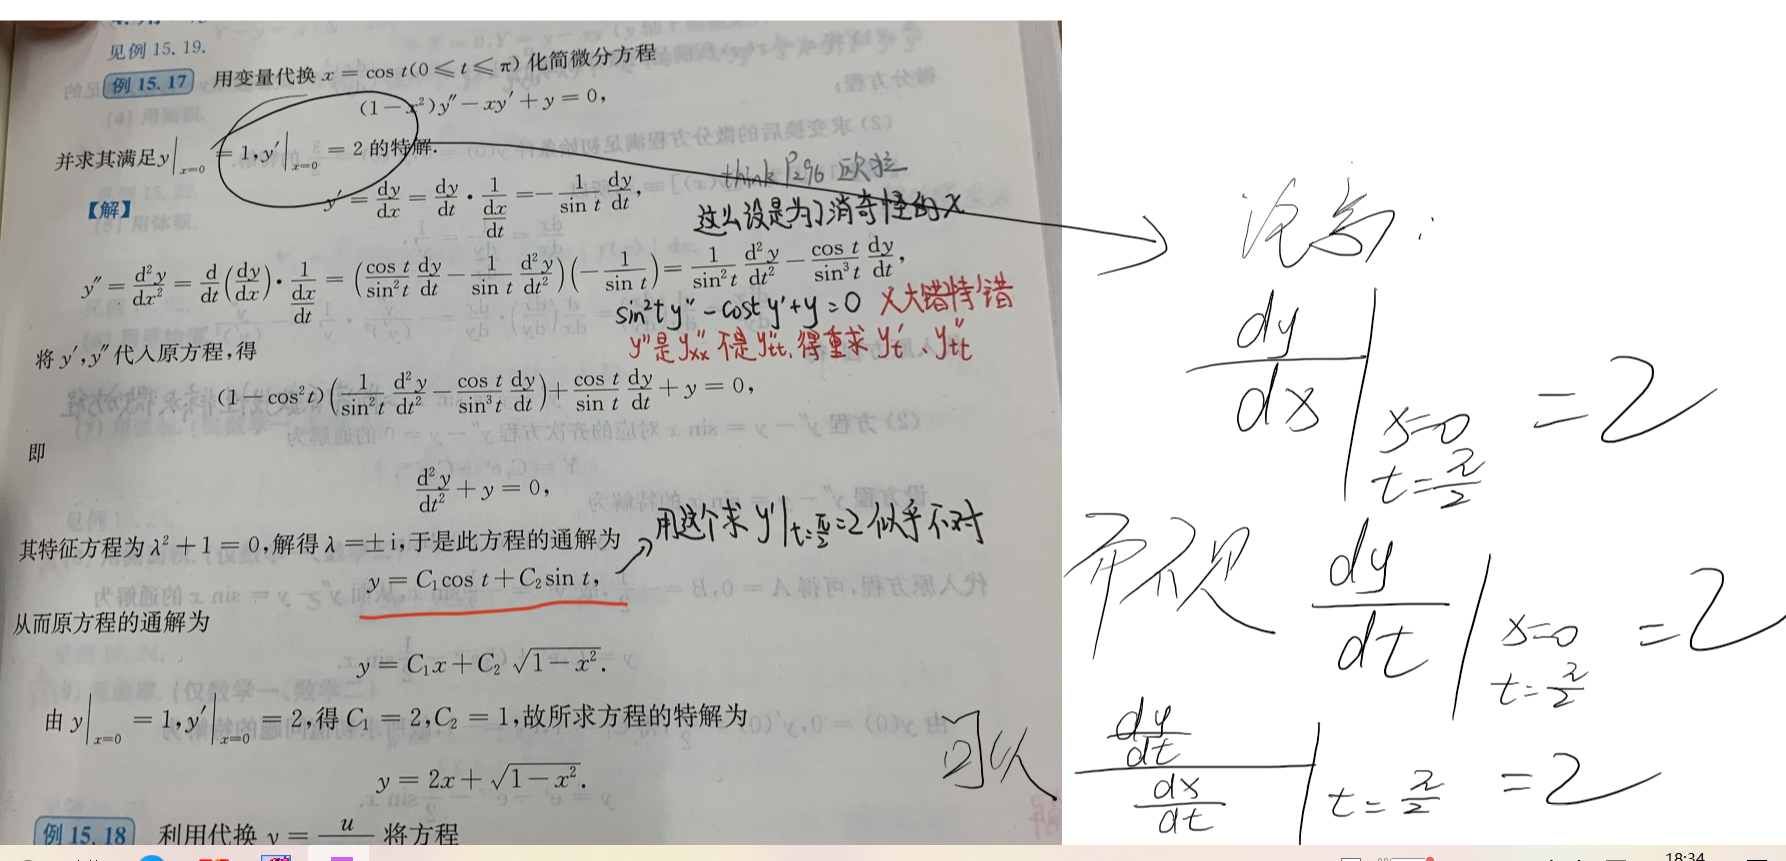 见例 15.19.
例 15.17 用变量代换 x = cos t(0 ⩽ t ⩽ π) 化简微分方程
(1−x²)y″−xy′+y=0,
并求其满足y|ₓ₌₀ = 1,y′|ₓ₌₀ = 2 的特解.
think P296 欧拉
【解】 y′ = dy/dx = dy/dt · 1/(dx/dt) = − 1/sin t dy/dt,
这么设是为了消奇怪的 x
y″ = d²y/dx² = d/dt(dy/dx) · 1/(dx/dt) = (cos t/sin²t dy/dt − 1/sin t d²y/dt²)(− 1/sin t) = 1/sin²t d²y/dt² − cos t/sin³t dy/dt,
sin²t y″ − cost y′ + y = 0 X 大错特错
y″是 y″xx 不是 y″tt, 得重求 y′t、y″tt
将 y′,y″代入原方程,得
(1−cos²t)(1/sin²t d²y/dt² − cos t/sin³t dy/dt) + cos t/sin t dy/dt + y = 0,
即
d²y/dt² + y = 0,
用这个求 y′|t=π/2=2 似乎不对
其特征方程为 λ²+1=0,解得 λ=±i,于是此方程的通解为
y = C₁cos t + C₂sin t,
从而原方程的通解为
y = C₁x + C₂√(1−x²).
由 y|ₓ₌₀ = 1,y′|ₓ₌₀ = 2,得 C₁ = 2,C₂ = 1,故所求方程的特解为
y = 2x + √(1−x²).
例 15.18 利用代换 y = u 将方程
dy/dx | x=0 t=π/2 = 2
而不是 dy/dt | x=0 t=π/2 = 2
可以 (dy/dt)/(dx/dt) | t=π/2 = 2
18:34